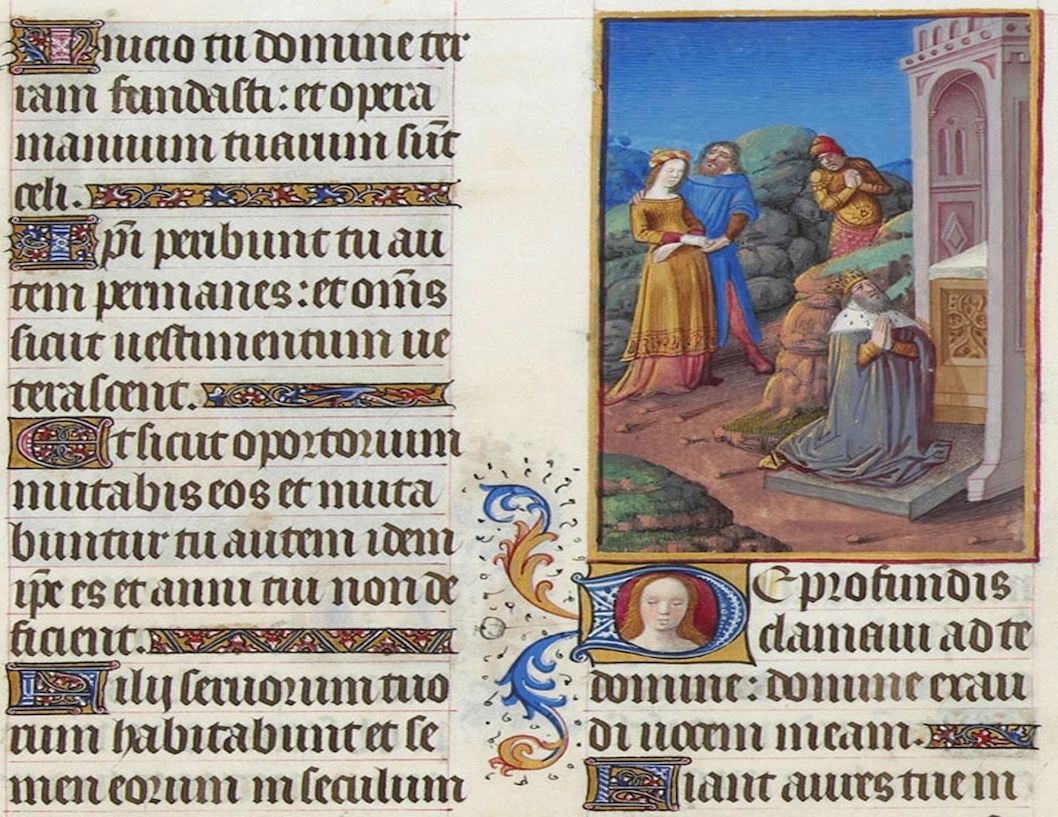 Inicio tu domine ter
ram fundasti: et opera
manuum tuarum sūt
celi.
Ipsi peribunt tu au
tem permanes: et om̄s
sicut uestimentum ue
terascent.
Et sicut oportorium
mutabis eos et muta
buntur tu autem idem
ip̄e es et anni tui non de
ficient.
Filij seruorum tuo
rum habitabunt et se
men eorum in seculum
De profundis
clamaui ad te
domine: domine exau
di uocem meam.
Fiant aures tue in